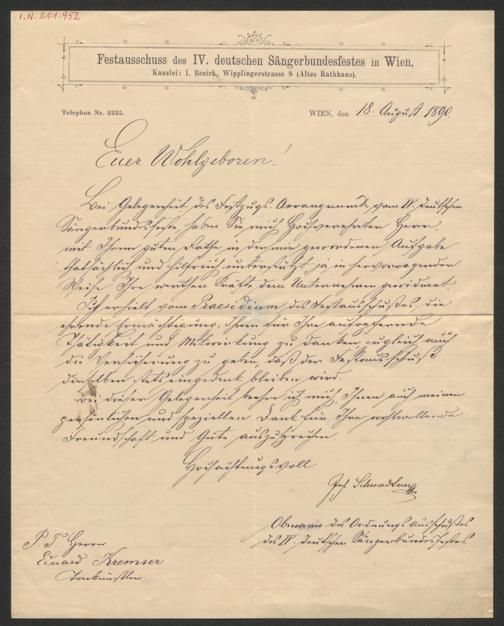 I.N. 201.952
Festausschuss des IV. deutschen Sängerbundesfestes in Wien,
Kanzlei: I. Bezirk, Wipplingerstrasse 8 (Altes Rathhaus).
Telephon Nr. 2335.
WIEN, den 18. August 1890.
Euer Wohlgeboren!
Bei Gelegenheit des Festzugs-Arrangements vom IV. deutschen
Sängerbundesfeste, haben Sie mich Hochverehrter Herr,
mit Ihrem guten Rathe in der mir gewordenen Aufgabe
thatsächlich und hilfreich unterstützt, ja in hervorragender
Weise Ihre werthen Kräfte dem Unternehmen gewidmet.
Ich erhielt vom Praesidium des Festausschußes die
ehrende Ermächtigung, Ihnen für Ihre aufopfernde
Thätigkeit und Mitwirkung zu danken zugleich auch
die Versicherung zu geben, daß der Festausschuß
derselben stets eingedenk bleiben wird.
Bei dieser Gelegenheit beehre ich mich Ihnen auch meinen
persönlichen und speziellen Dank für Ihre wohlwollende
Freundschaft und Güte auszudrücken
Hochachtungsvoll
Obmann des Ordnungs-Ausschußes
des IV. deutschen Sängerbundesfestes
P. T. Herrn
Eduard Kremser
Tonkünstler